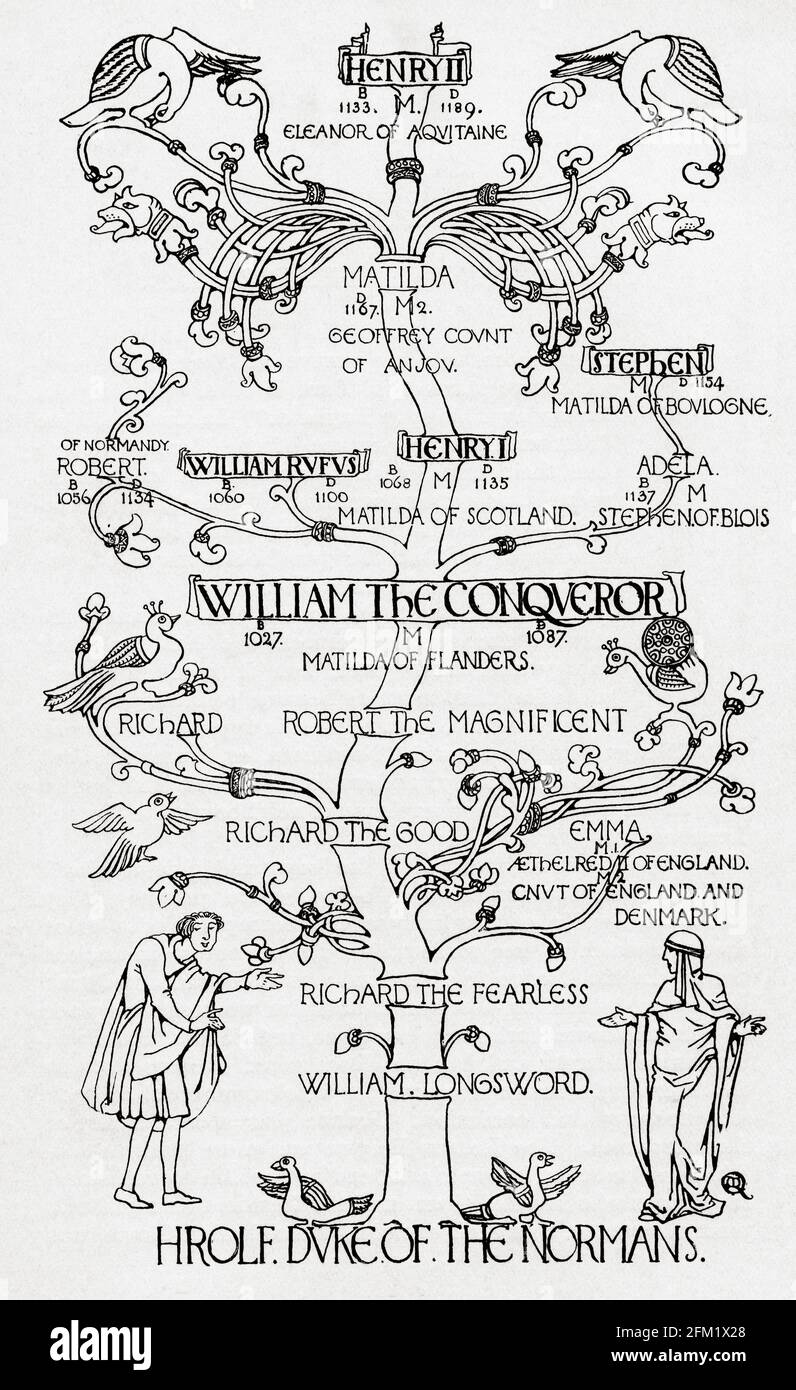 HENRY II
B D
1133. M. 1189.
ELEANOR OF AQVITAINE
MATILDA
D
1167. M2.
GEOFFREY COVNT
OF ANJOV.
STEPHEN
M D 1154
MATILDA OF BOVLOGNE.
OF NORMANDY.
ROBERT.
B D
1056 1134
WILLIAM RVFVS
B. D
1060 1100
HENRY.I
B D
1068 M 1135
MATILDA OF SCOTLAND.
ADELA.
B
1137 M
STEPHEN.OF.BLOIS
WILLIAM THE CONQVEROR
B B
1027. M 1087.
MATILDA OF FLANDERS.
RICHARD
ROBERT THE MAGNIFICENT
RICHARD THE GOOD
EMMA
M.1.
ÆTHELRED II OF ENGLAND.
M2
CNVT OF ENGLAND AND
DENMARK.
RICHARD THE FEARLESS
WILLIAM. LONGSWORD.
HROLF. DVKE. OF. THE NORMANS.
alamy
Image ID: 2FM1X28
www.alamy.com